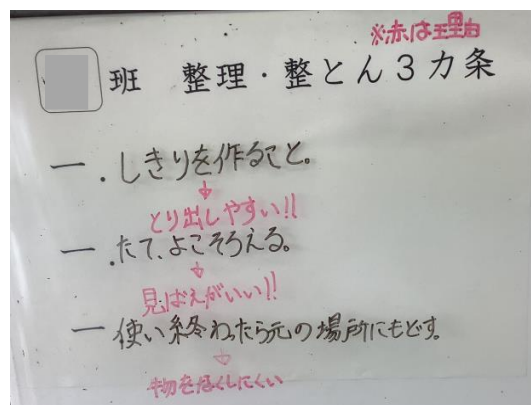 ※赤は理由
班 整理・整とん3カ条
一.しきりを作ること。
↓
とり出しやすい!!
一.たて、よこそろえる。
↓
見ばえがいい!!
一 使い終わったら元の場所にもどす。
↓
物をなくしにくい